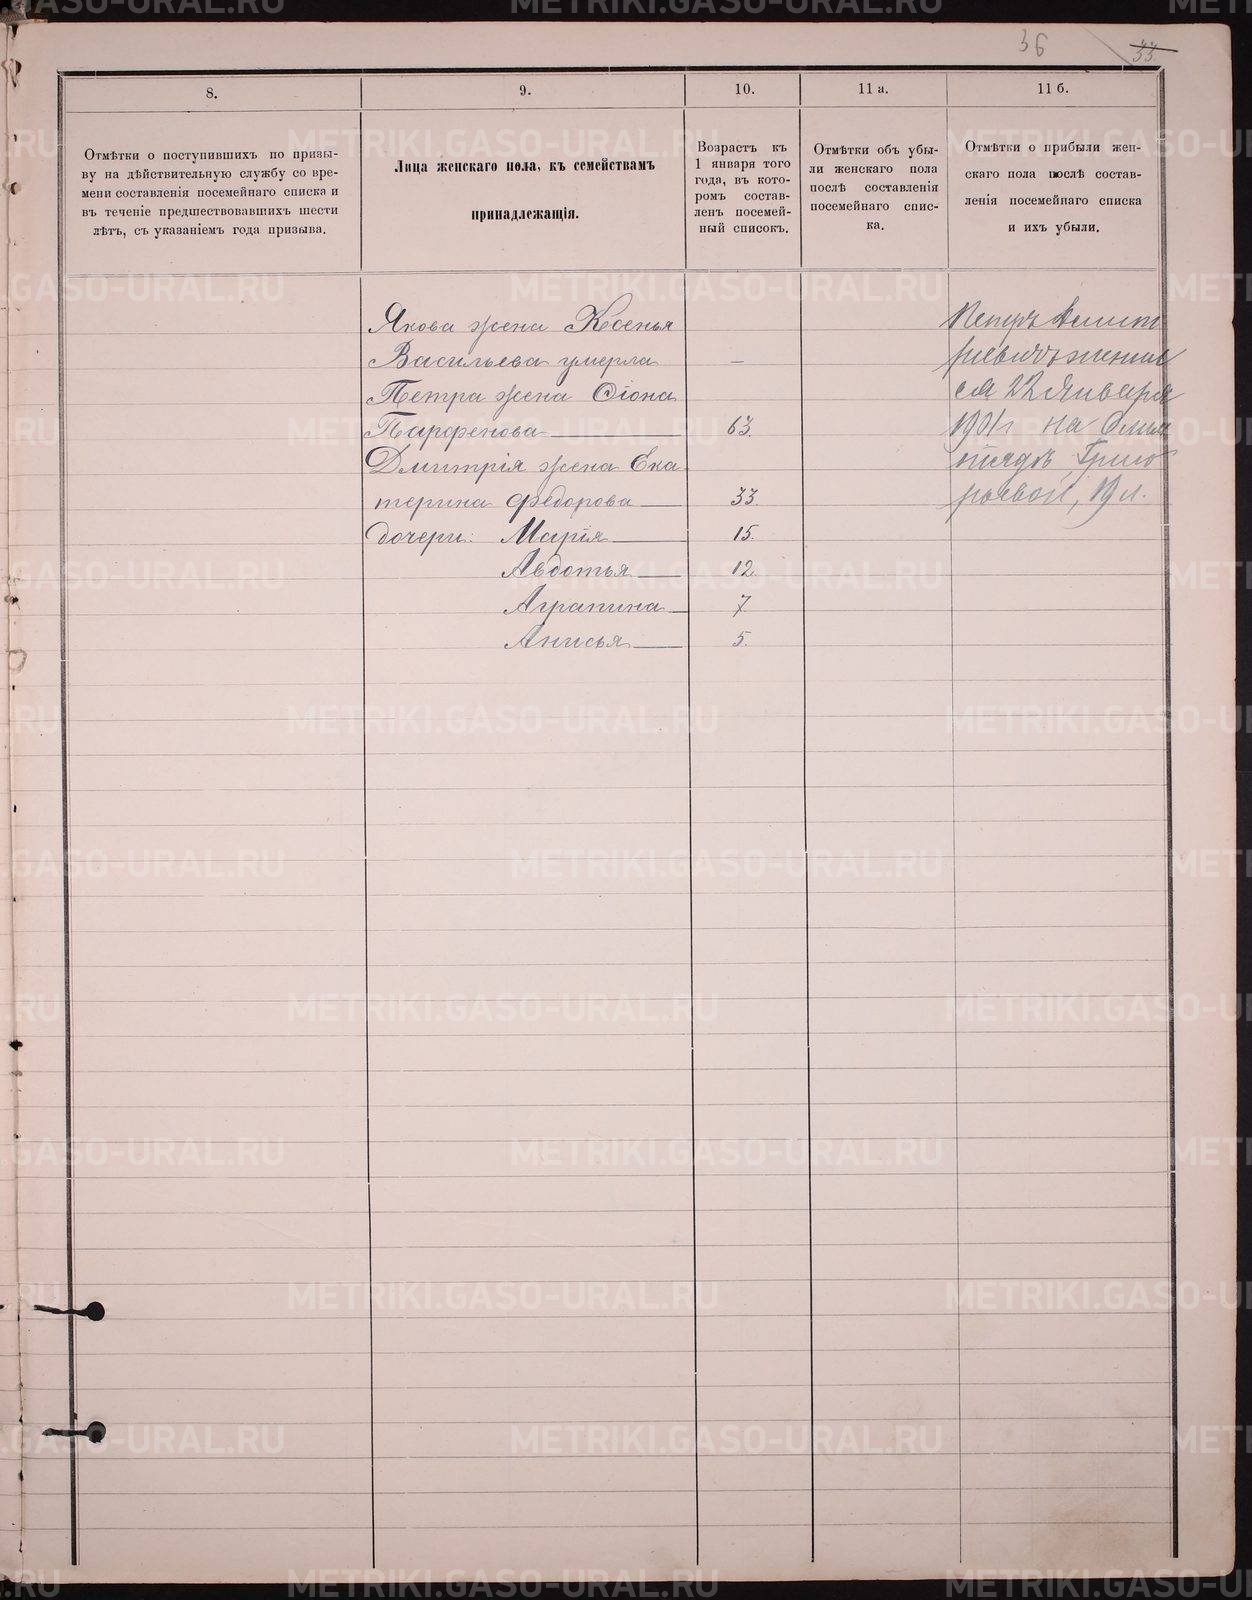 36
33
8.
9.
10.
11 а.
11 б.
Отмѣтки о поступившихъ по призы-
ву на дѣйствительную службу со вре-
мени составленія посемейнаго списка и
въ теченіе предшествовавшихъ шести
лѣтъ, съ указаніемъ года призыва.
Лица женскаго пола, къ семействамъ
принадлежащія.
Возрастъ къ
1 января того
года, въ кото-
ромъ состав-
ленъ посемей-
ный списокъ.
Отмѣтки объ убы-
ли женскаго пола
послѣ составленія
посемейнаго спис-
ка.
Отмѣтки о прибыли жен-
скаго пола послѣ состав-
ленія посемейнаго списка
и ихъ убыли.
Якова жена Ксенья
Васильева умерла —
Петра жена Фіона
Парфенова 63.
Дмитрія жена Ека
терина Федорова 33.
дочери: Марія 15.
Авдотья 12.
Аграпина 7
Анисья 5.
Петръ Дмит
ріевичъ женил
ся 22 Января
1901 г на
Григо
рьевой, 19 л.
METRIKI.GASO-URAL.RU